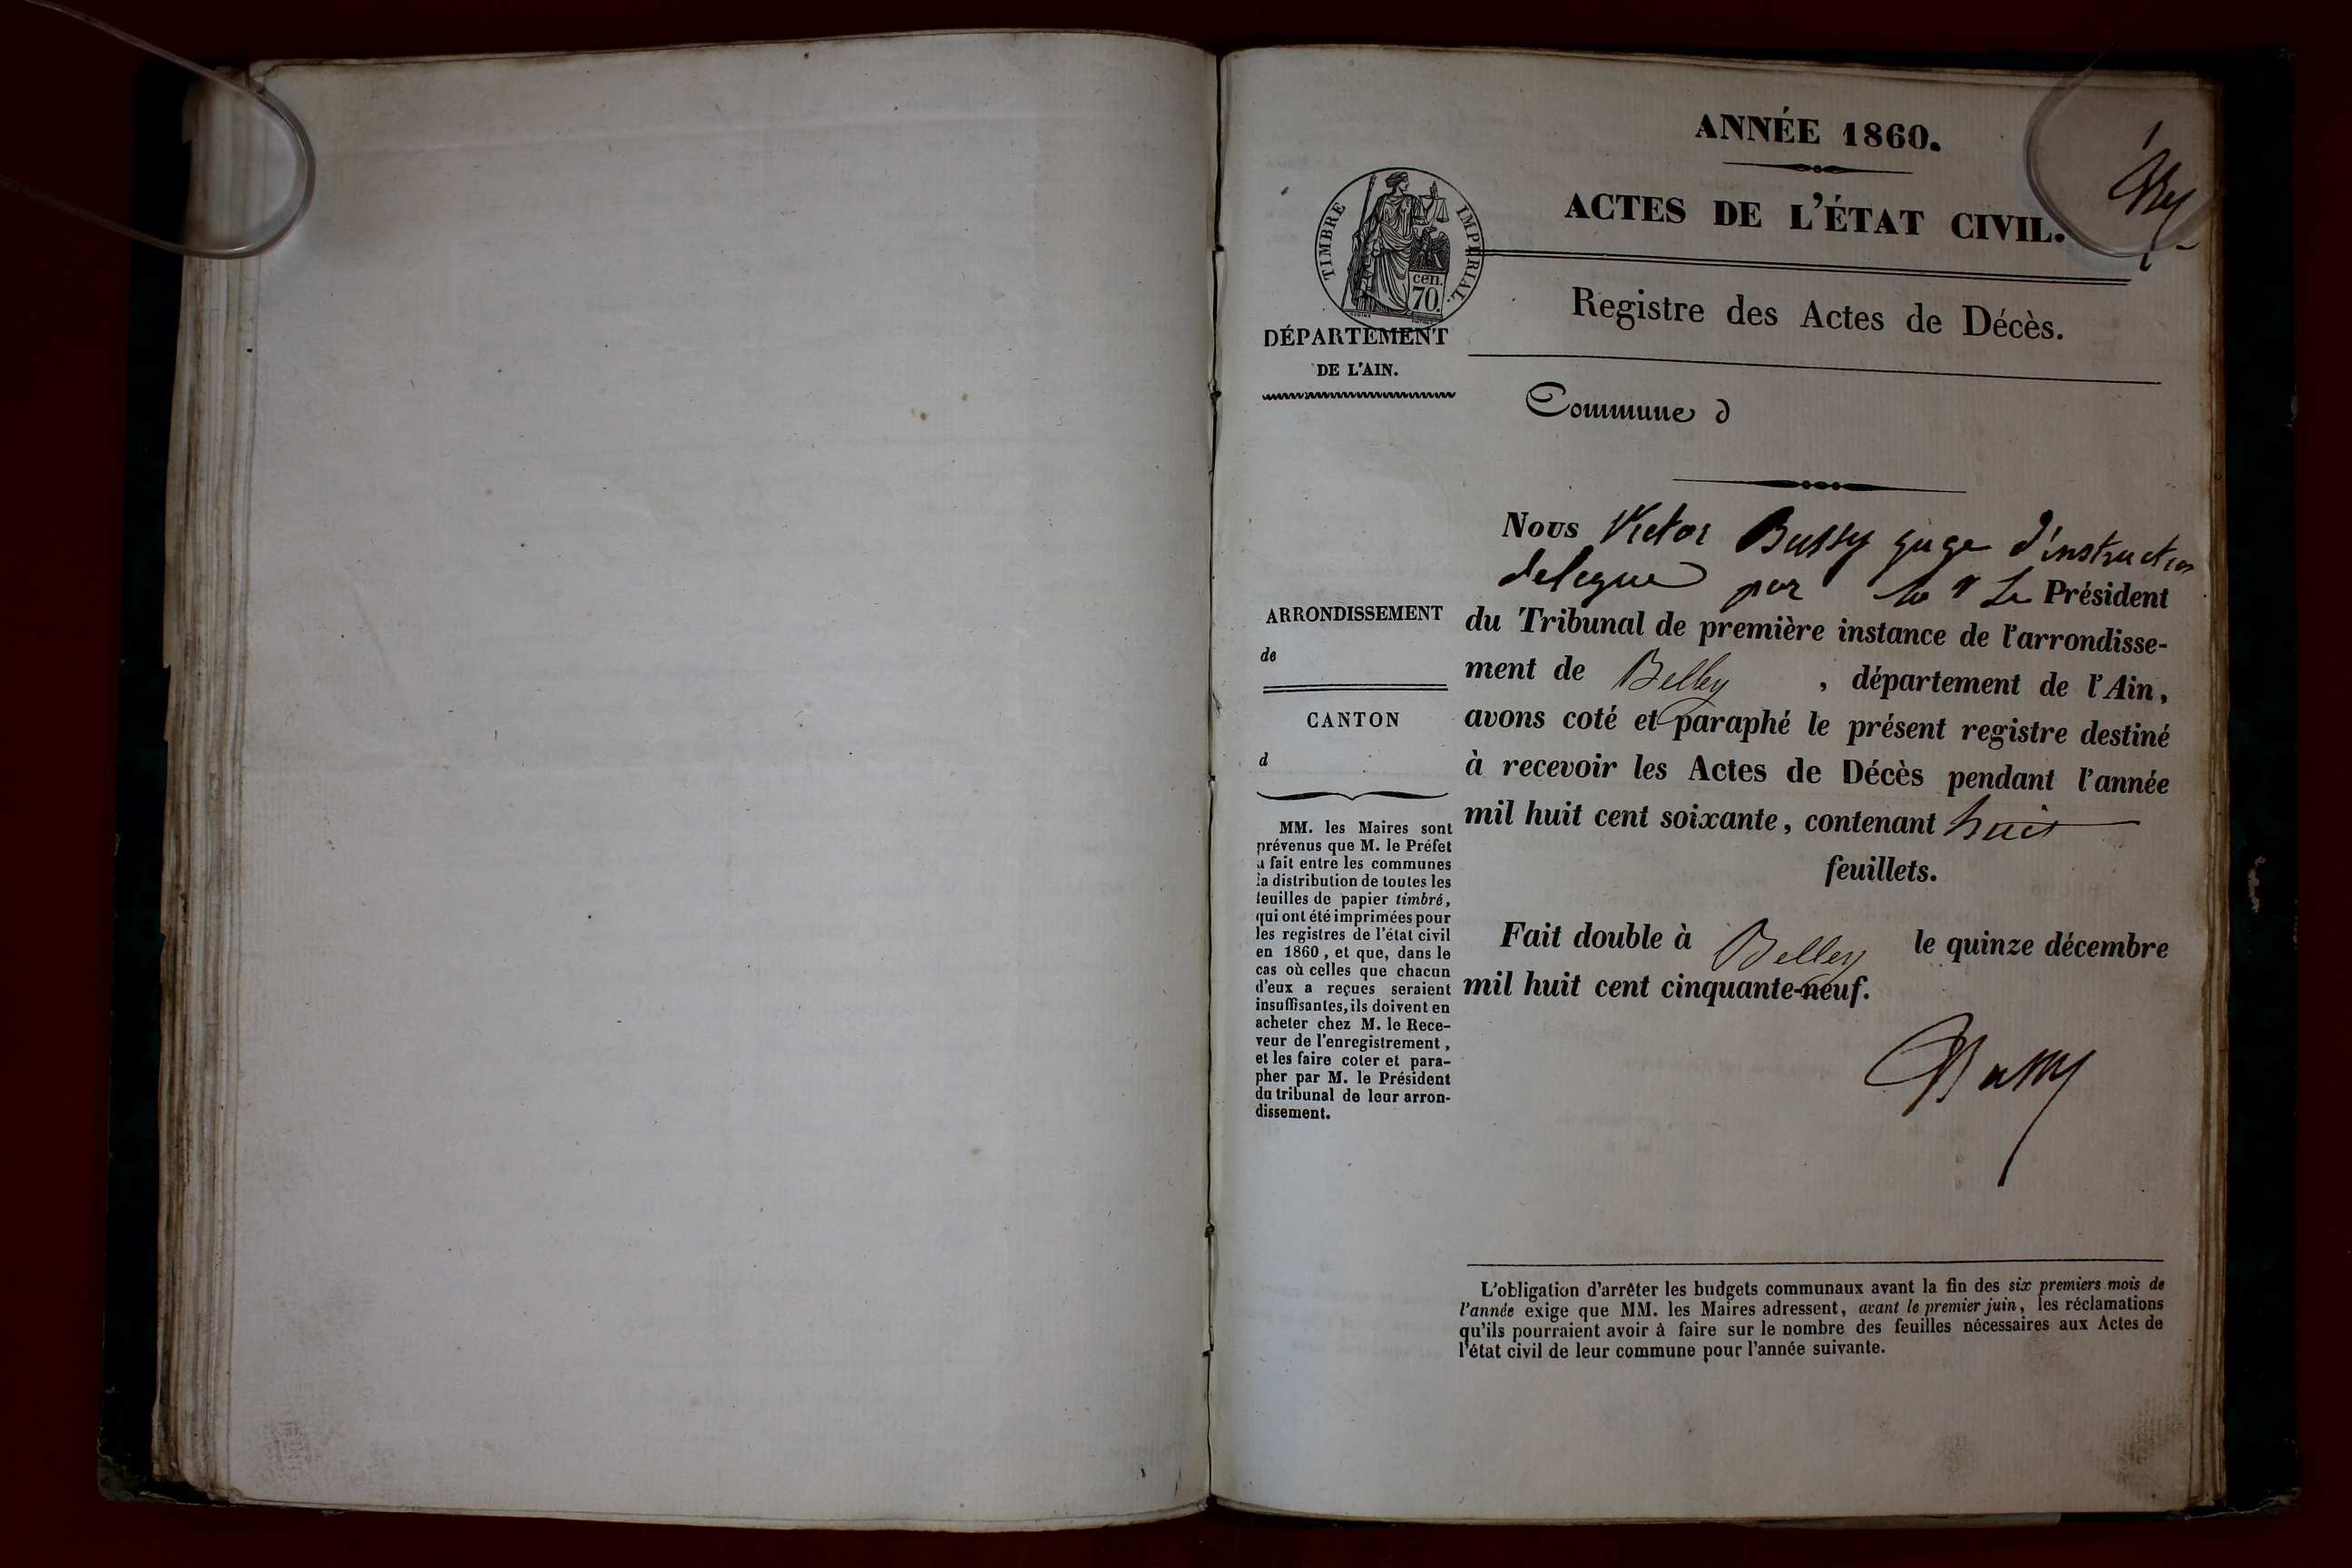 ANNÉE 1860.
ACTES DE L'ÉTAT CIVIL.
TIMBRE IMPÉRIAL.
cen.
70.
Registre des Actes de Décès.
DÉPARTEMENT
DE L'AIN.
Commune d
Nous Victor Bussy juge d'instruction
delegue par Le Président
du Tribunal de première instance de l'arrondisse-
ment de Belley , département de l'Ain,
avons coté et paraphé le présent registre destiné
à recevoir les Actes de Décès pendant l'année
mil huit cent soixante, contenant huit
feuillets.
Fait double à Belley le quinze décembre
mil huit cent cinquante-neuf.
Bussy
ARRONDISSEMENT
de
CANTON
d
MM. les Maires sont
prévenus que M. le Préfet
a fait entre les communes
la distribution de toutes les
feuilles de papier timbré,
qui ont été imprimées pour
les registres de l'état civil
en 1860, et que, dans le
cas où celles que chacun
d'eux a reçues seraient
insuffisantes, ils doivent en
acheter chez M. le Rece-
veur de l'enregistrement,
et les faire coter et para-
pher par M. le Président
du tribunal de leur arron-
dissement.
L'obligation d'arrêter les budgets communaux avant la fin des six premiers mois de
l'année exige que MM. les Maires adressent, avant le premier juin, les réclamations
qu'ils pourraient avoir à faire sur le nombre des feuilles nécessaires aux Actes de
l'état civil de leur commune pour l'année suivante.